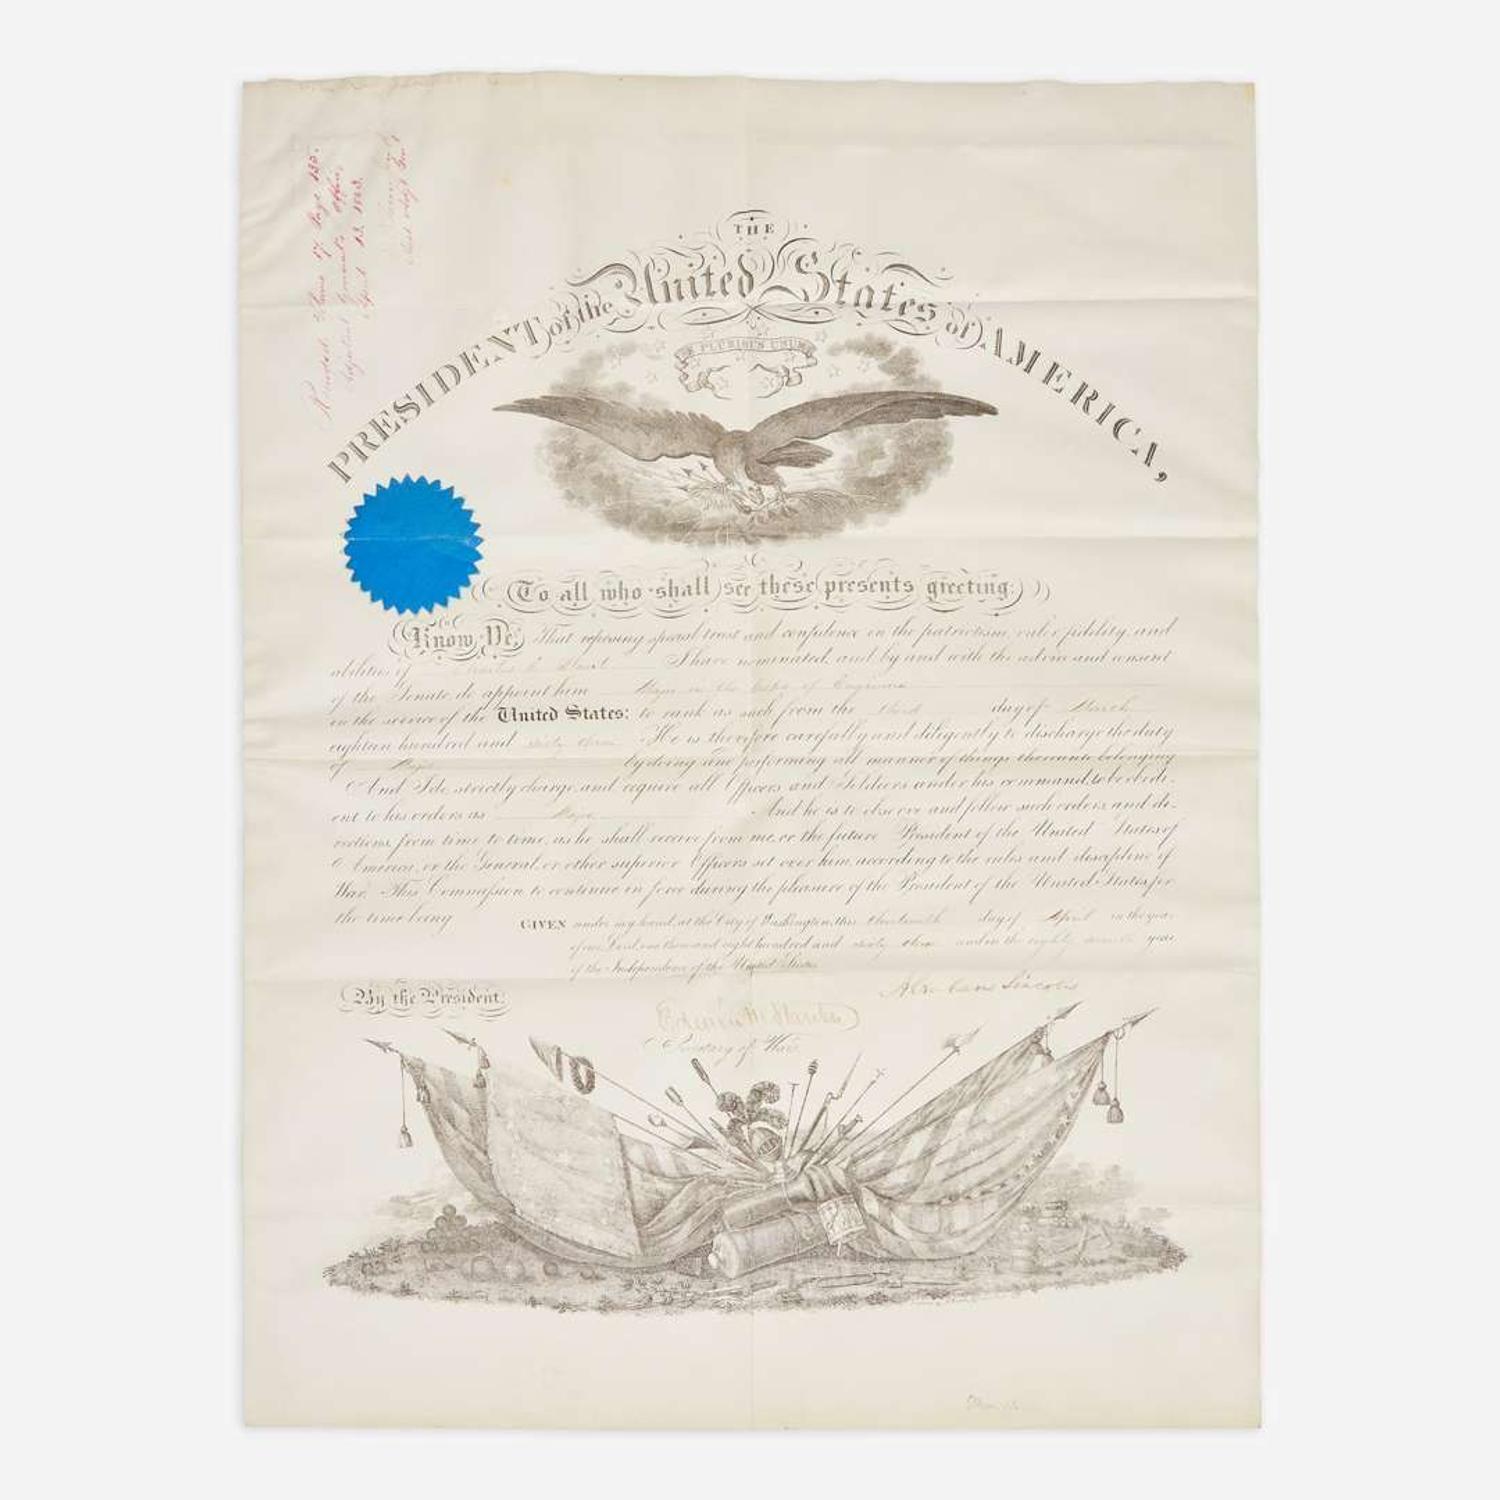 Page 135.
Adjutant General's Office
April 13. 1863.
Asst Adjt Genl
THE
PRESIDENT of the United States of AMERICA,
E PLURIBUS UNUM
To all who shall see these presents greeting:
Know Ye, That reposing special trust and confidence in the patriotism, valor, fidelity, and
abilities of I have nominated, and by and with the advice and consent
of the Senate, do appoint him Major in the Corps of Engineers
in the service of the United States: to rank as such from the third day of March
eighteen hundred and sixty three. He is therefore carefully and diligently to discharge the duty
of Major by doing and performing all manner of things thereunto belonging
And I do strictly charge, and require all Officers and Soldiers under his command, to be obedi-
ent to his orders as Major And he is to observe and follow such orders, and di-
rections, from time to time, as he shall receive from me, or the future President of the United States of
America, or the General, or other superior Officers set over him, according to the rules and discipline of
War. This Commission to continue in force during the pleasure of the President of the United States, for
the time being
GIVEN under my hand, at the City of Washington, this thirteenth day of April in the year
of our Lord, one thousand eight hundred and sixty three and in the eighty seventh year
of the Independence of the United States
Abraham Lincoln
By the President:
Edwin M Stanton
Secretary of War.